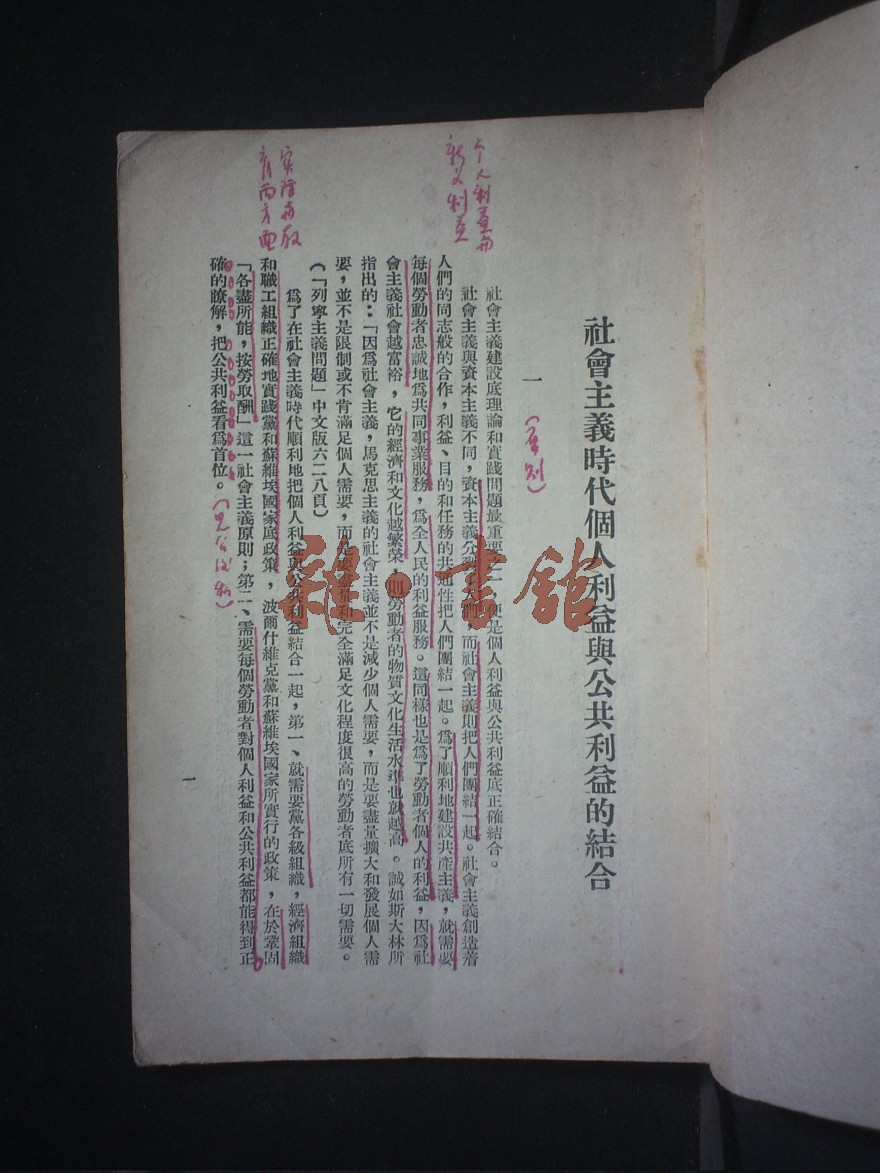 社會主義時代個人利益與公共利益的結合
一
社會主義建設底理論和實踐問題最重要之一，便是個人利益與公共利益底正確結合。
社會主義與資本主義不同，資本主義分裂了人們，而社會主義則把人們團結一起。社會主義創造着
人們的同志般的合作，利益、目的和任務的共通性把人們團結一起。爲了順利地建設共產主義，就需要
每個勞動者忠誠地爲共同事業服務，爲全人民的利益服務。這同樣也是爲了勞動者個人的利益，因爲社
會主義社會越富裕，它的經濟和文化越繁榮，則勞動者的物質文化生活水準也就越高。誠如斯大林所
指出的：「因爲社會主義，馬克思主義的社會主義並不是減少個人需要，而是要盡量擴大和發展個人需
要，並不是限制或不肯滿足個人需要，而是要盡量和完全滿足文化程度很高的勞動者底所有一切需要。
（「列寧主義問題」中文版六二八頁）
爲了在社會主義時代順利地把個人利益與公共利益結合一起，第一、就需要黨各級組織，經濟組織
和職工組織正確地實踐黨和蘇維埃國家底政策，波爾什維克黨和蘇維埃國家所實行的政策，在於鞏固
「各盡所能，按勞取酬」這一社會主義原則；第二、需要每個勞動者對個人利益和公共利益都能得到正
確的瞭解，把公共利益看爲首位。
一
个人利益与
雜·書館